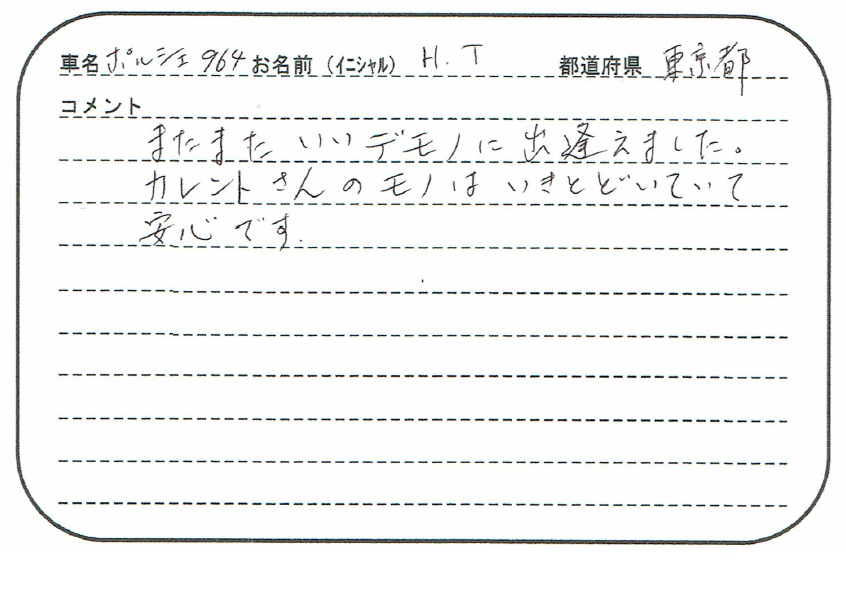 車名 ポルシェ964 お名前（イニシャル） H.T 都道府県 東京都
コメント
またまた いいデモノに出逢えました。
カレントさんのモノは いきとどいていて
安心です.